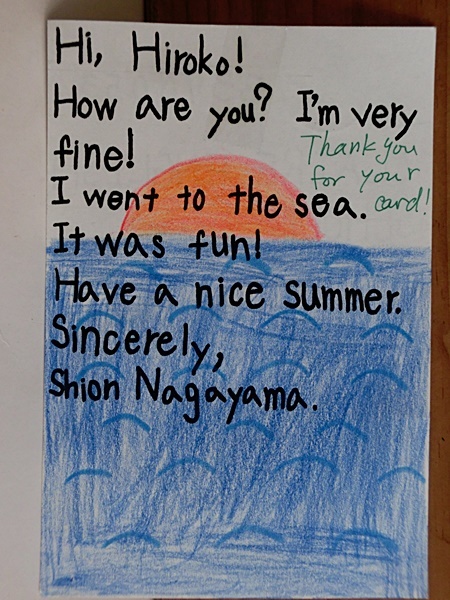 Hi, Hiroko!
How are you? I'm very
fine!
Thank you
for your
card!
I went to the sea.
It was fun!
Have a nice summer.
Sincerely,
Shion Nagayama.